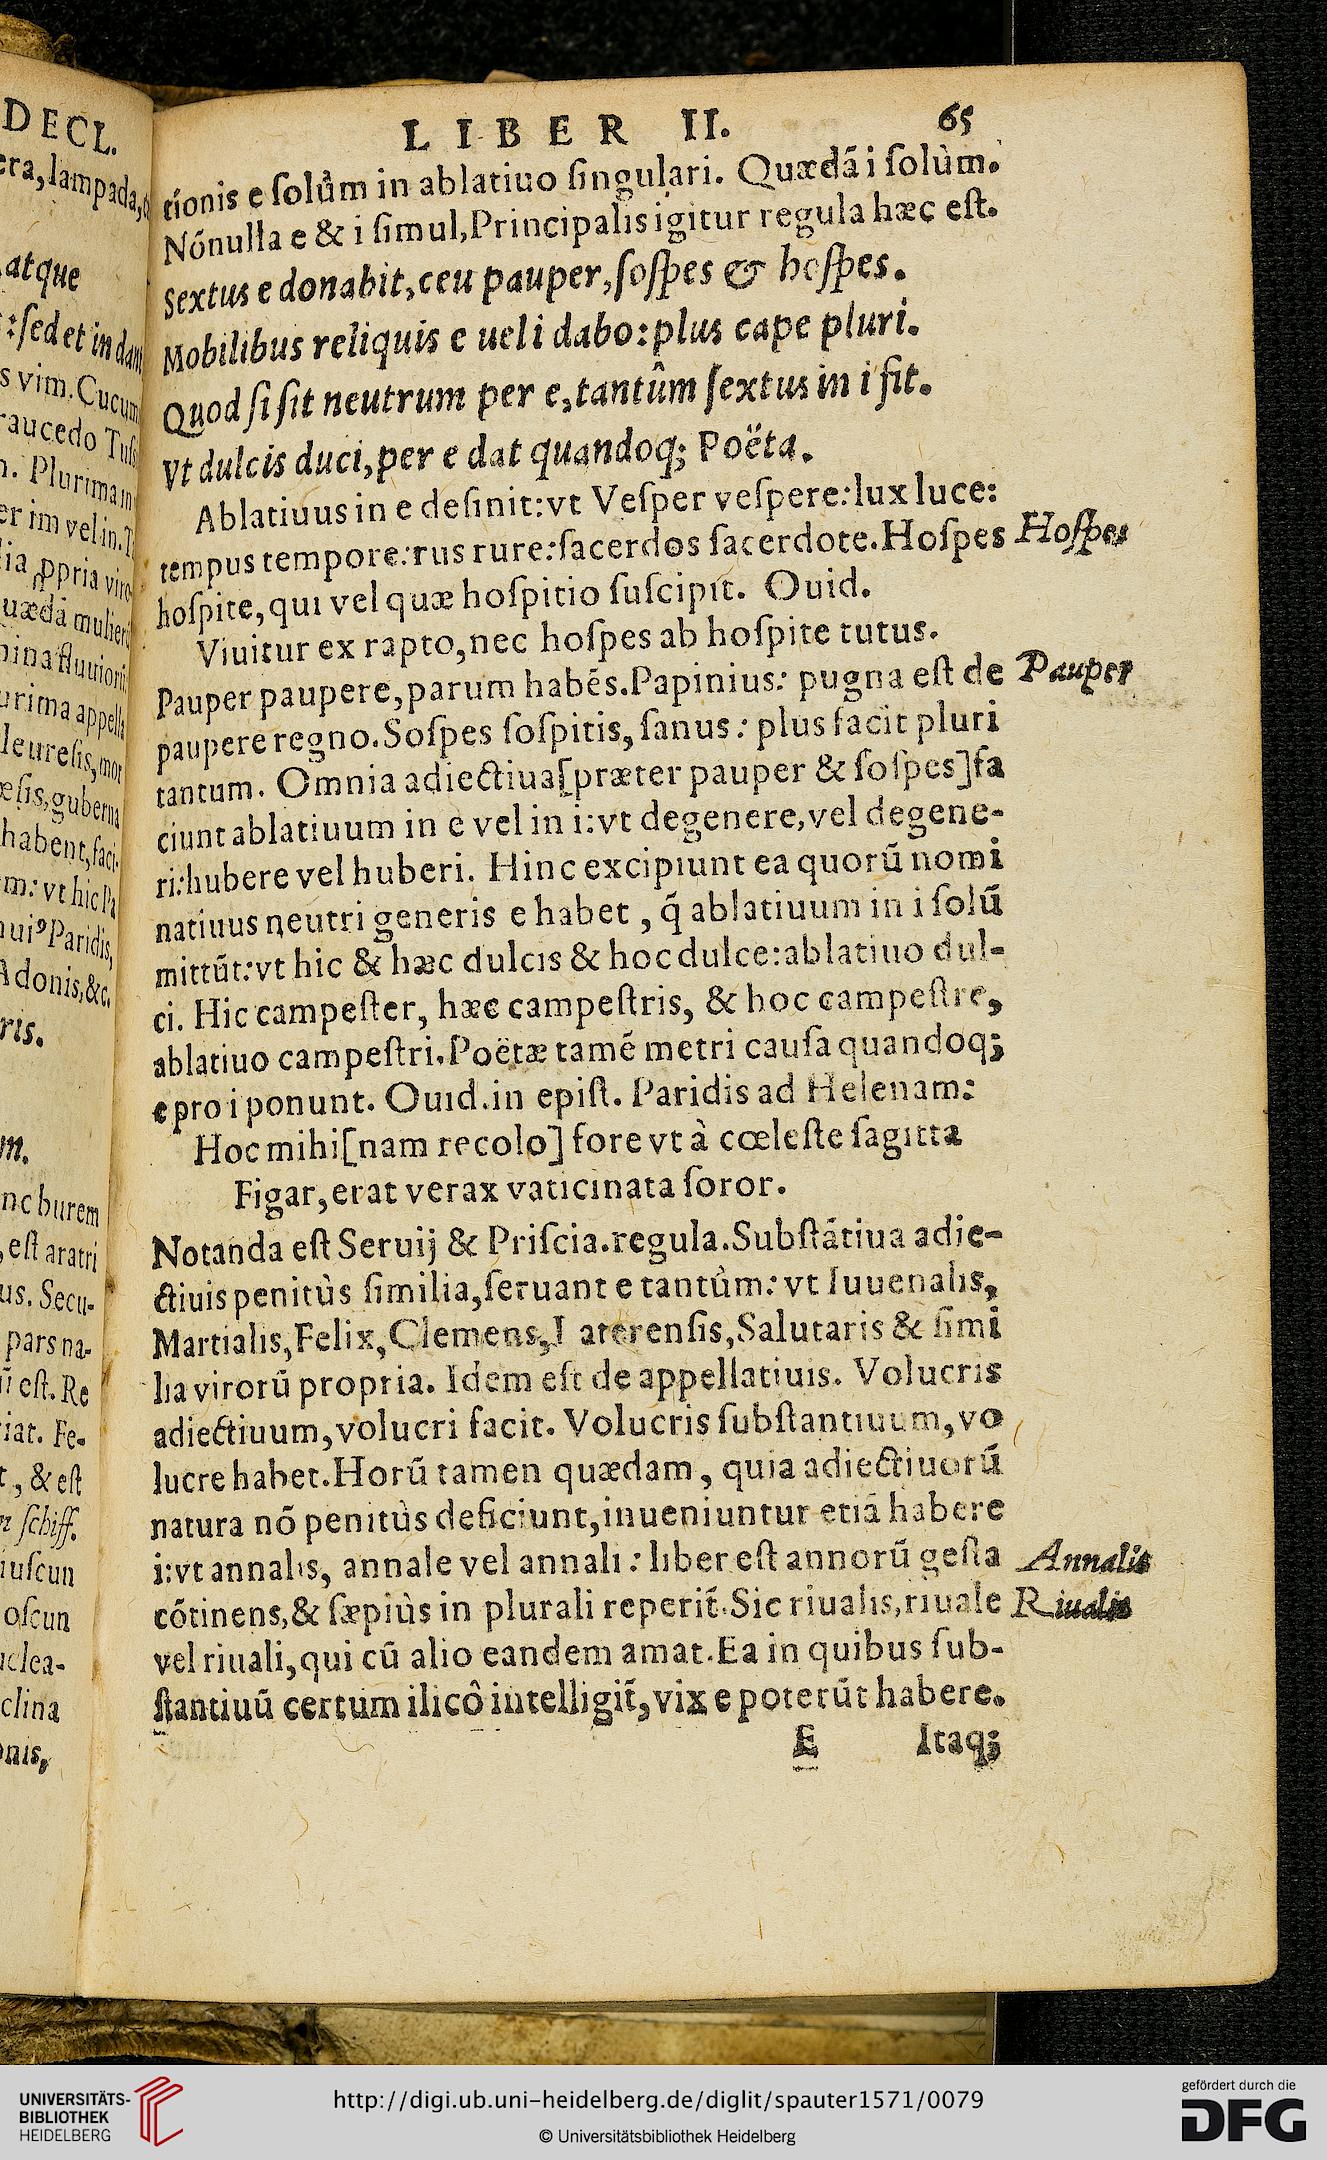 DECL.
lampada,
atque
sed et in dant
s vim. Cucum
raucedo Tus
n. Plurima in
er im vel in. T
ꝓpria viro
uædã mulieri
urima appella
leuresis, mor
æsis, guberna
habent, faci-
m: vt hic Pa
nuiꝰ Paridis,
Adonis, &c.
ris.
m.
nc burem
, est aratri
us. Secu-
pars na-
ũ est. Re
iat. Fe-
t, & est
n schiff.
iuscun
oscun
uclea-
clina
onis,
LIBER II. 65
tionis e solùm in ablatiuo singulari. Quædã i solùm.
Nõnulla e & i simul, Principalis igitur regula hæc est.
Sextus e donabit, ceu pauper, sospes & hospes.
Mobilibus reliquis e uel i dabo: plus cape pluri.
Quod si sit neutrum per e, tantûm sextus in i fit.
Vt dulcis duci, per e dat quandoq; Poëta.
Ablatiuus in e desinit: vt Vesper vespere: lux luce:
tempus tempore: rus rure: sacerdos sacerdote. Hospes Hospes
hospite, qui vel quæ hospitio suscipit. Ouid.
Viuitur ex rapto, nec hospes ab hospite tutus.
Pauper paupere, parum habẽs. Papinius: pugna est de Pauper
paupere regno. Sospes sospitis, sanus: plus facit pluri
tantum. Omnia adiectiua [præter pauper & sospes] fa
ciunt ablatiuum in e vel in i: vt degenere, vel degene-
ri: hubere vel huberi. Hinc excipiunt ea quorũ nomi
natiuus neutri generis e habet, q̃ ablatiuum in i solũ
mittũt: vt hic & hæc dulcis & hoc dulce: ablatiuo dul-
ci. Hic campester, hæc campestris, & hoc campestre,
ablatiuo campestri. Poëtæ tamẽ metri causa quandoq;
e pro i ponunt. Ouid. in epist. Paridis ad Helenam:
Hoc mihi [nam recolo] fore vt à cœleste sagitta
Figar, erat verax vaticinata soror.
Notanda est Seruij & Priscia. regula. Substãtiua adie-
ctiuis penitùs similia, seruant e tantùm: vt Iuuenalis,
Martialis, Felix, Clemens, aterensis, Salutaris & simi
lia virorũ propria. Idem est de appellatiuis. Volucris
adiectiuum, volucri facit. Volucris substantiuum, vo
lucre habet. Horũ tamen quædam, quia adiectiuorũ
natura nõ penitùs deficiunt, inueniuntur etiã habere
i: vt annalis, annale vel annali: liber est annorũ gesta Annalis
cõtinens, & sæpiùs in plurali reperit̃. Sic riualis, riuale Riualis
vel riuali, qui cũ alio eandem amat. Ea in quibus sub-
stantiuũ certum ilicô intelligit̃, vix e poterũt habere.
E Itaq;
UNIVERSITÄTS-
BIBLIOTHEK
HEIDELBERG
http://digi.ub.uni-heidelberg.de/diglit/spauter1571/0079
© Universitätsbibliothek Heidelberg
gefördert durch die
DFG